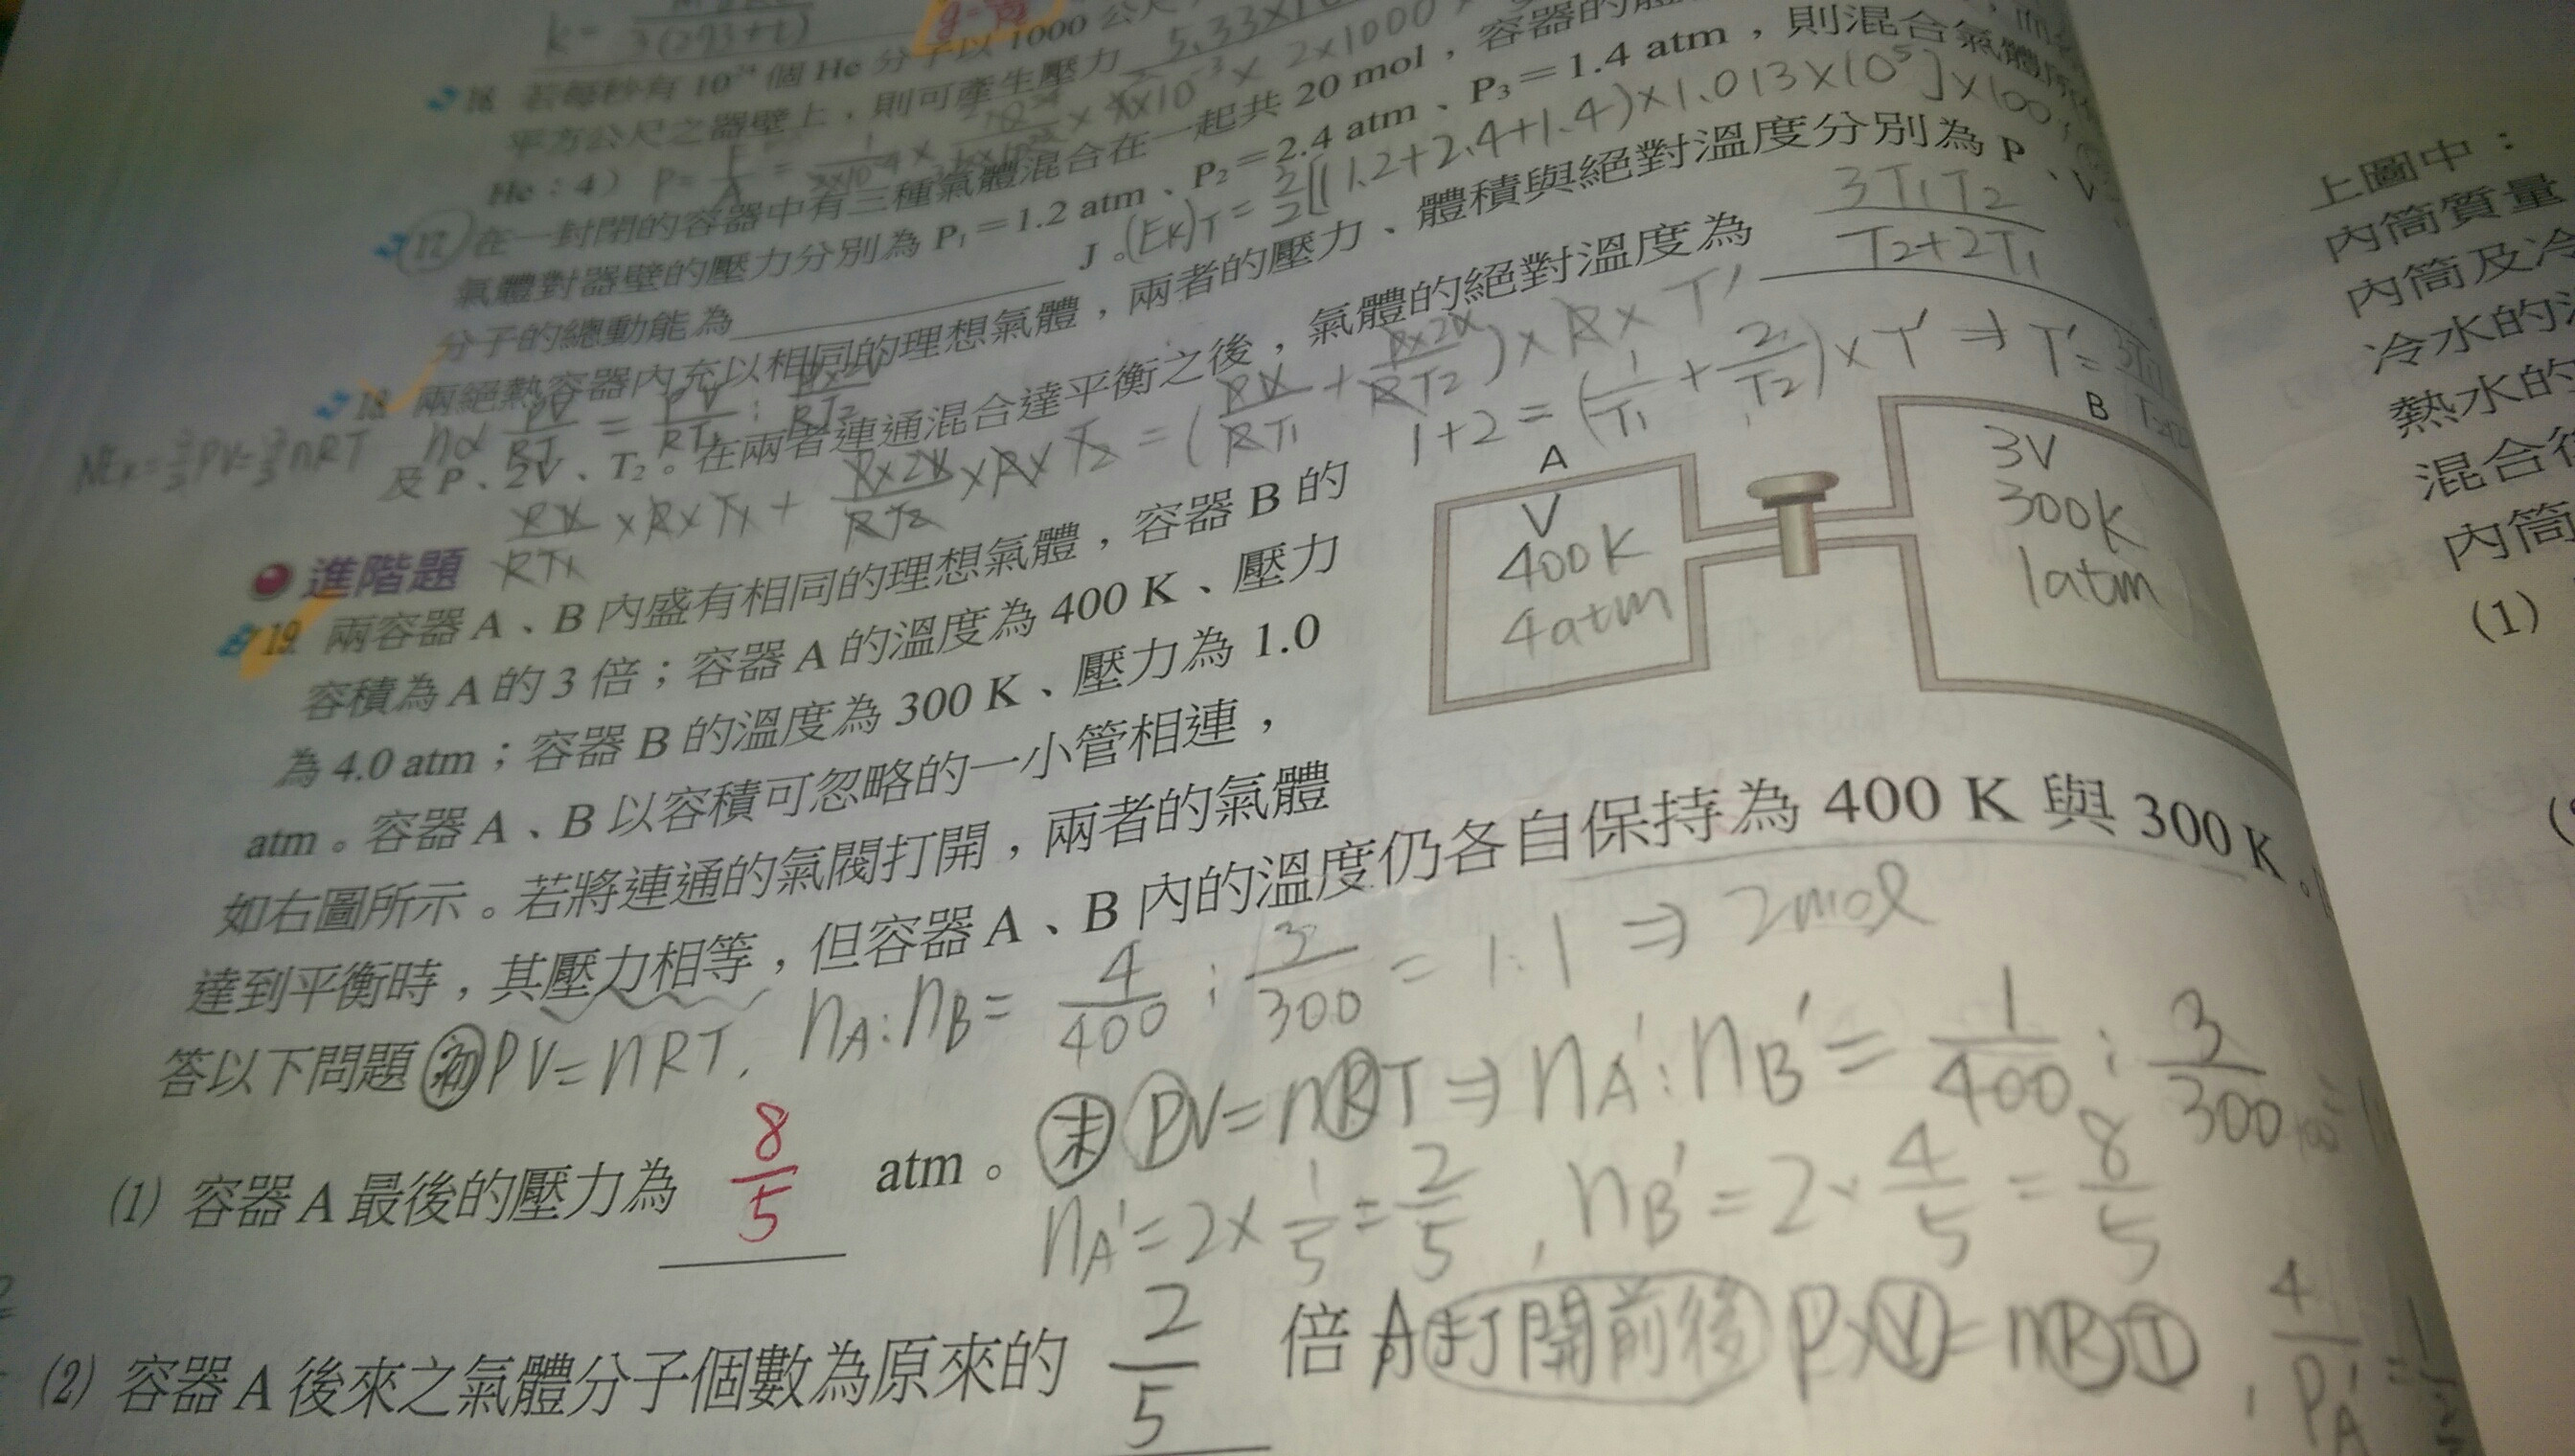 k = 3(273+t)
16. 若每秒有 10²⁴ 個 He 分子以 1000 公尺
平方公尺之器壁上，則可產生壓力
He：4)
17. 在一封閉的容器中有三種氣體混合在一起共 20 mol，容器的體
氣體對器壁的壓力分別為 P₁＝1.2 atm、P₂＝2.4 atm、P₃＝1.4 atm，則混合氣體
分子的總動能為 J。(Ek)T = 3/2[(1.2+2.4+1.4)×1.013×10⁵]×100
18. 兩絕熱容器內充以相同的理想氣體，兩者的壓力、體積與絕對溫度分別為 P、V
及 P、2V、T₂。在兩者連通混合達平衡之後，氣體的絕對溫度為 3T₁T₂/T₂+2T₁
NEk = 3/2 PV = 3/2 nRT
n∝ PV/RT = PV/RT₁ : P×2V/RT₂
PV/RT₁ ×R×T₁ + P×2V/RT₂ ×R×T₂ = (PV/RT₁ + P×2V/RT₂)×R×T'
1+2 = (1/T₁ + 2/T₂)×T' ⇒ T' =
進階題
19. 兩容器 A、B 內盛有相同的理想氣體，容器 B 的
容積為 A 的 3 倍；容器 A 的溫度為 400 K、壓力
為 4.0 atm；容器 B 的溫度為 300 K、壓力為 1.0
atm。容器 A、B 以容積可忽略的一小管相連，
如右圖所示。若將連通的氣閥打開，兩者的氣體
達到平衡時，其壓力相等，但容器 A、B 內的溫度仍各自保持為 400 K 與 300 K。
答以下問題
A
V
400K
4atm
B
3V
300K
1atm
初 PV=nRT, nA:nB = 4/400 : 3/300 = 1:1 ⇒ 2mol
(1) 容器 A 最後的壓力為 8/5 atm。
末 PV=nRT ⇒ nA':nB' = 1/400 : 3/300
nA' = 2×1/5 = 2/5, nB' = 2·4/5 = 8/5
(2) 容器 A 後來之氣體分子個數為原來的 2/5 倍
打開前後 P×V=nRT, 4/PA' =
上圖中：
內筒質量
內筒及冷
冷水的
熱水的
混合後
內筒
(1)